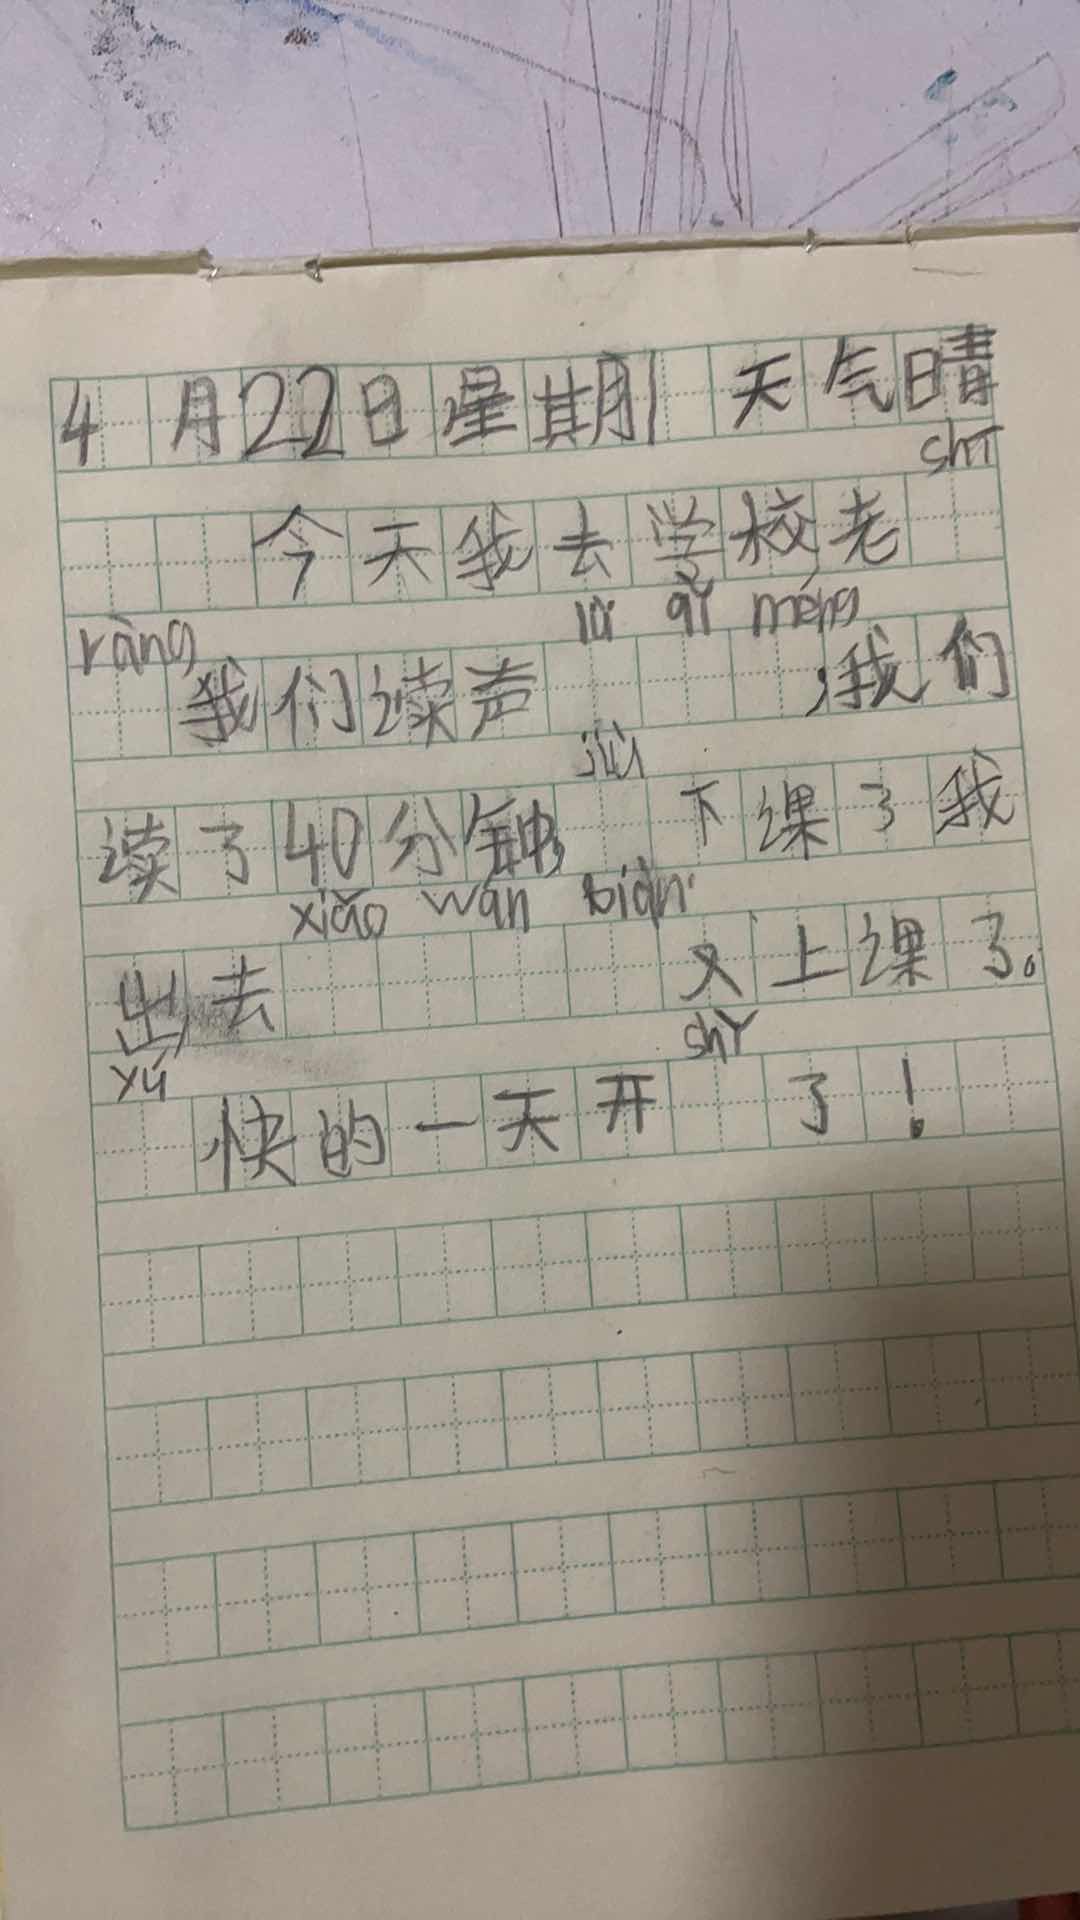 4月22日星期1 天气晴
shī
今天我去学校老
ràng lǜ qǐ méng
我们读声 ,我们
jiù
读了40分钟, 下课了我
xiǎo wán biàn
出去 又上课了。
yú shǐ
快的一天开 了!